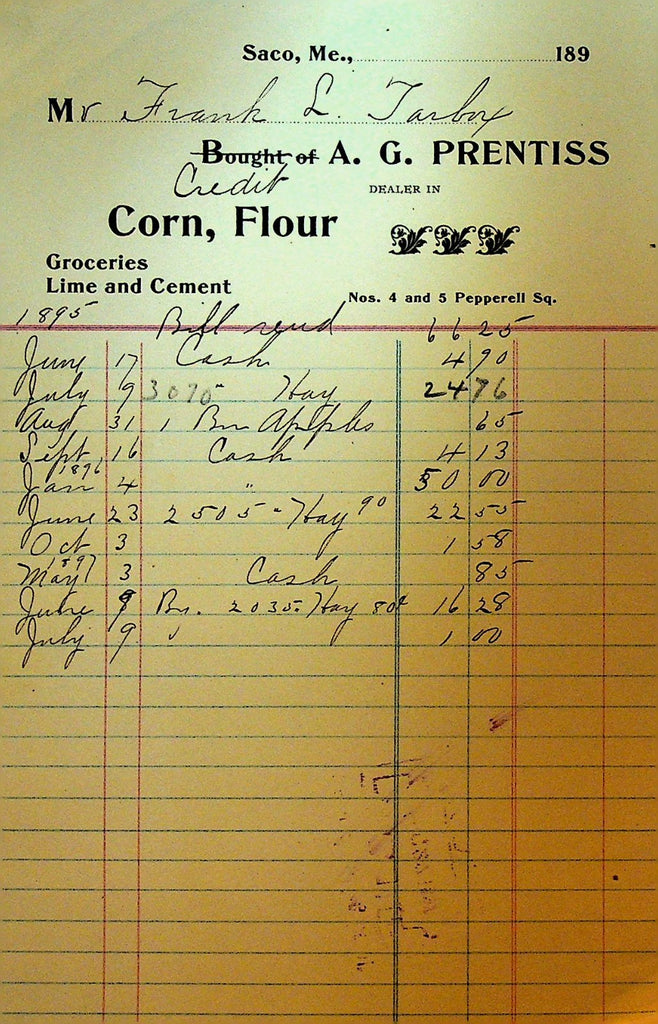 Saco, Me., 189
Mr Frank L. Tarbox
Bought of A. G. PRENTISS
Credit
DEALER IN
Corn, Flour
Groceries
Lime and Cement
Nos. 4 and 5 Pepperell Sq.
1895 Bill rend 66 25
June 17 Cash 4 90
July 9 3075 Hay 24 76
Aug 31 1 Bu Apples 65
Sept 16 Cash 4 13
1896
Jan 4 " 50 00
June 23 2505 - Hay 90 22 55
Oct 3 1 58
1897
May 3 Cash 85
June 9 2035. Hay 80¢ 16 28
July 9 " 1 00